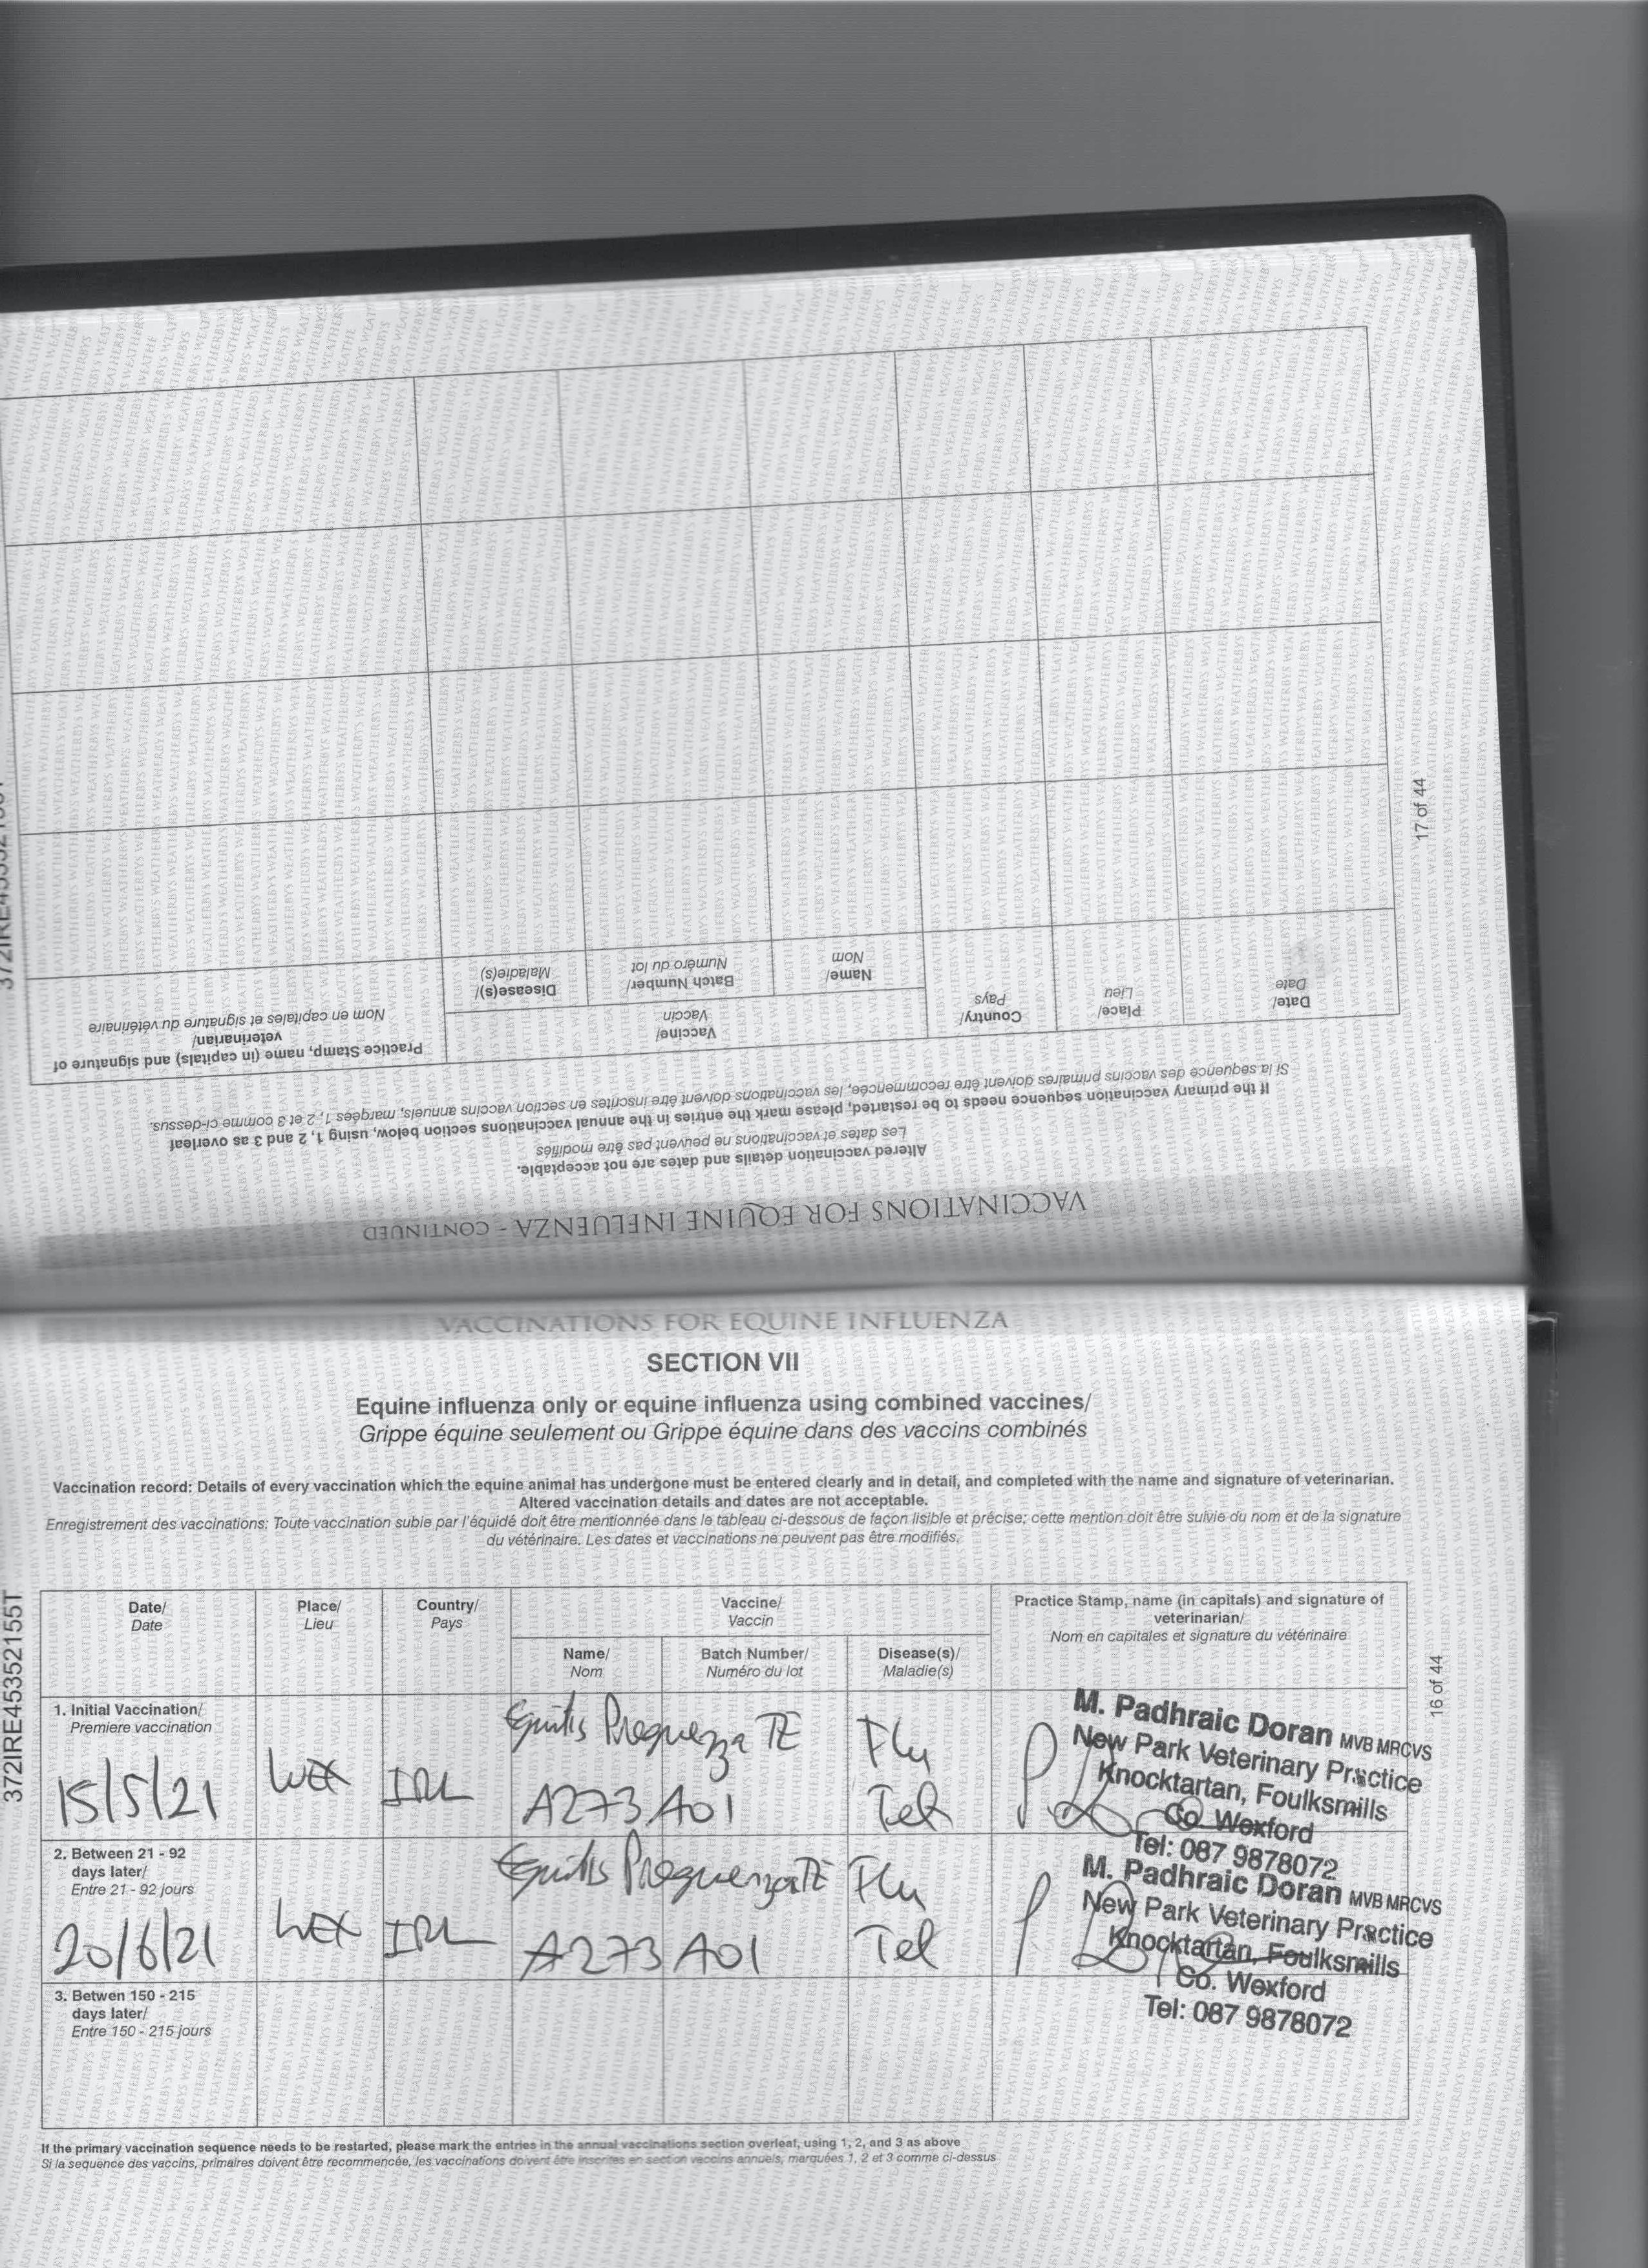 VACCINATIONS FOR EQUINE INFLUENZA - CONTINUED
Altered vaccination details and dates are not acceptable.
Les dates et vaccinations ne peuvent pas être modifiés
If the primary vaccination sequence needs to be restarted, please mark the entries in the annual vaccinations section below, using 1, 2 and 3 as overleaf
Si la séquence des vaccins primaires doivent être recommencée, les vaccinations doivent être inscrites en section vaccins annuels, margées 1, 2 et 3 comme ci-dessus.
Date/
Date
Place/
Lieu
Country/
Pays
Vaccine/
Vaccin
Name/
Nom
Batch Number/
Numéro du lot
Disease(s)/
Maladie(s)
Practice Stamp, name (in capitals) and signature of
veterinarian/
Nom en capitales et signature du vétérinaire
17 of 44
VACCINATIONS FOR EQUINE INFLUENZA
SECTION VII
Equine influenza only or equine influenza using combined vaccines/
Grippe équine seulement ou Grippe équine dans des vaccins combinés
Vaccination record: Details of every vaccination which the equine animal has undergone must be entered clearly and in detail, and completed with the name and signature of veterinarian.
Altered vaccination details and dates are not acceptable.
Enregistrement des vaccinations: Toute vaccination subie par l'équidé doit être mentionnée dans le tableau ci-dessous de façon lisible et précise; cette mention doit être suivie du nom et de la signature
du vétérinaire. Les dates et vaccinations ne peuvent pas être modifiés.
372IRE45352155T
Date/
Date
Place/
Lieu
Country/
Pays
Vaccine/
Vaccin
Name/
Nom
Batch Number/
Numéro du lot
Disease(s)/
Maladie(s)
Practice Stamp, name (in capitals) and signature of
veterinarian/
Nom en capitales et signature du vétérinaire
1. Initial Vaccination/
Premiere vaccination
15/5/21
WEX
IRL
Equilis Prequenza TE
A273A01
Flu
Tet
M. Padhraic Doran MVB MRCVS
New Park Veterinary Practice
Knocktartan, Foulksmills
Co. Wexford
Tel: 087 9878072
2. Between 21 - 92
days later/
Entre 21 - 92 jours
20/6/21
WEX
IRL
Equilis Prequenza TE
A273A01
Flu
Tet
M. Padhraic Doran MVB MRCVS
New Park Veterinary Practice
Knocktartan, Foulksmills
Co. Wexford
Tel: 087 9878072
3. Betwen 150 - 215
days later/
Entre 150 - 215 jours
16 of 44
If the primary vaccination sequence needs to be restarted, please mark the entries in the annual vaccinations section overleaf, using 1, 2, and 3 as above
Si la sequence des vaccins, primaires doivent être recommencée, les vaccinations doivent être inscrites en section vaccins annuels, marquées 1, 2 et 3 comme ci-dessus